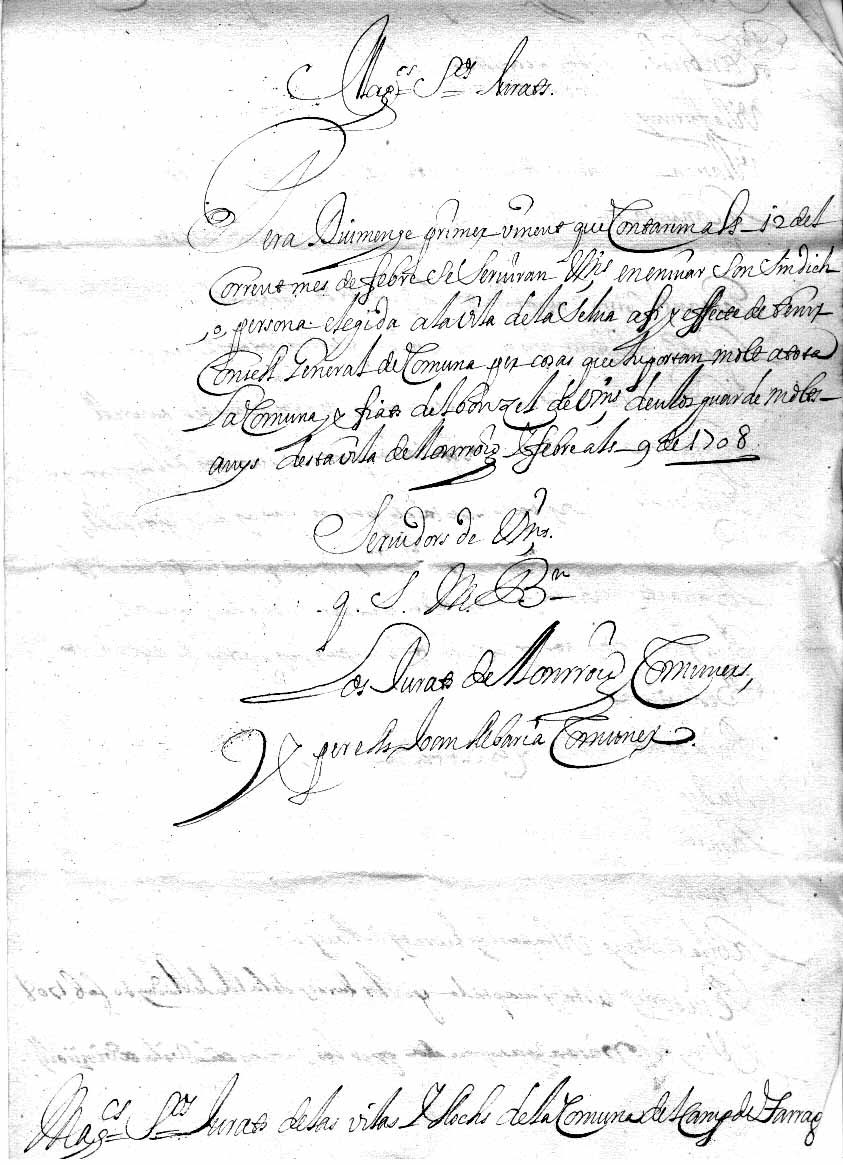 Mag.cs S.rs Jurats.
Pera Diumenge primer vinent que Contarim als 12 del
Corrent mes de febre se Serviran Vms, en enviar son sindich
o persona elegida a la vila de la Selva a fi y effecte de tenir
Consell General de Comuna per cosas que importan molt a tota
La Comuna, y fiats del bon zel de Vms, deu los guarde molts
anys desta vila de Monrroig y febre als 9 de 1708
Servidors de Vms.
q. S. M. Bn
Los Jurats de Monrroig Comuners,
Y per ells Joan Comuner.
Mag.cs S.rs Jurats de las vilas Y llochs de la Comuna del Camp de Tarrag